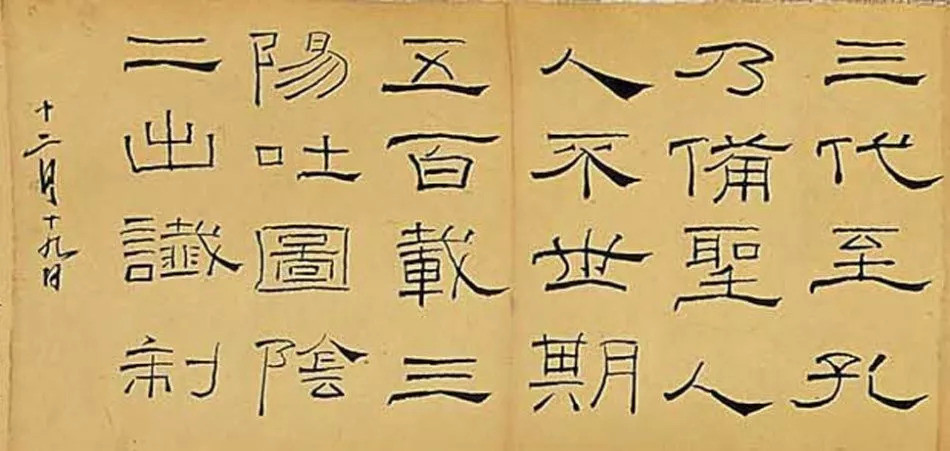 三代至孔
乃備聖人
人不世期
五百載三
陽吐圖陰
二出讖制
十二月十九日